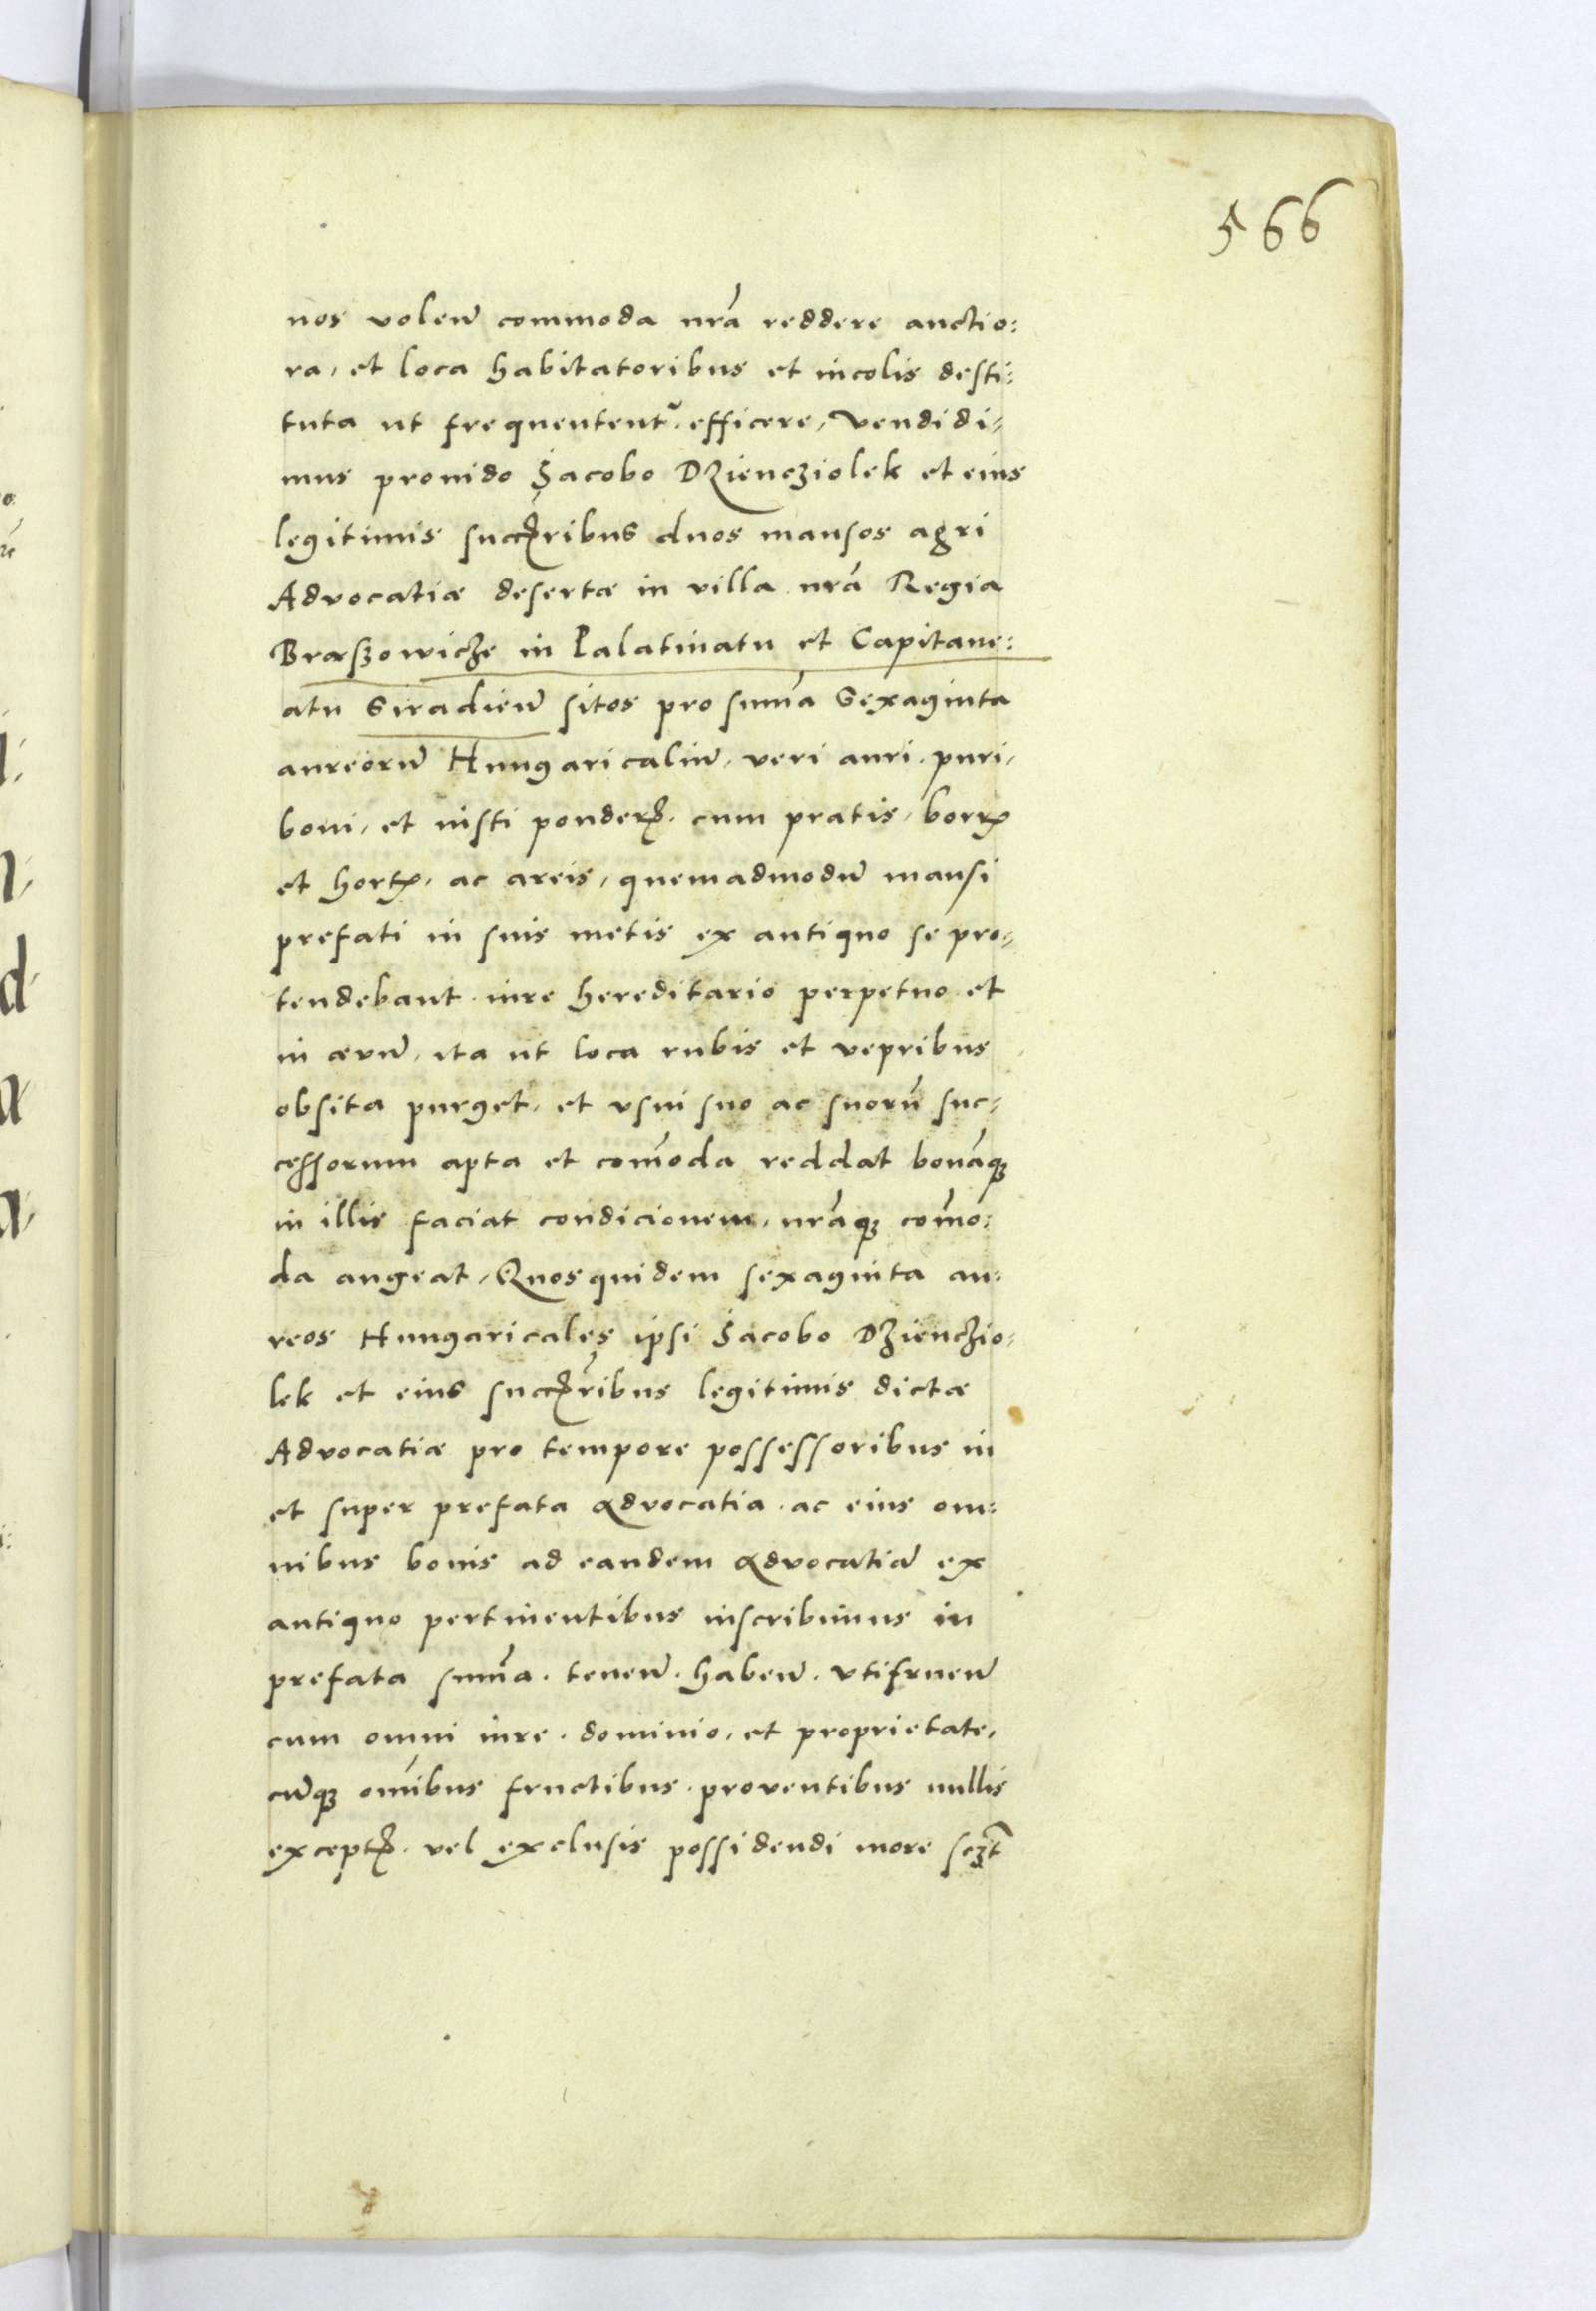 566
nos volen̄ commoda nrā reddere auctio:
ra, et loca habitatoribus et incolis desti:
tuta ut frequentent̃. efficere, Vendidi,
mus prouido Jacobo Dziencziolek et eius
legitimis succꝛibus duos mansos agri
Advocatiæ desertæ in villa nrā Regia
Braszowicze in Palatinatu et Capitane:
atu Siradien̄ sitos pro sum̄a Sexaginta
aureorū Hungaricaliū, veri auri. puri,
boni, et iusti ponderꝭ. cum pratis, borrꝭ
et hortꝭ, ac areis, quemadmodū mansi
prefati in suis metis ex antiquo se pro,
tendebant. iure hereditario perpetuo. et
in ævū, ita ut loca rubis et vepribus
obsita purget, et vsui suo ac suorū suc,
cessorum apta et com̄oda reddat bonāqꝫ
in illis faciat condicionem, nrāqꝫ com̄o:
da augeat, Quosquidem sexaginta au:
reos Hungaricales ipsi Jacobo Dzienczio,
lek et eius succꝛibus legitimis dictæ
Advocatiæ pro tempore possessoribus in
et super prefata Advocatia. ac eius om:
nibus bonis ad eandem Advocatiā ex
antiquo pertinentibus inscribimus in
prefata sum̄a. tenen̄. haben̄. vtifruen̄
cum omni iure. dominio, et proprietate,
cūqꝫ om̄ibus fructibus. proventibus nullis
exceptꝭ. vel exclusis possidendi more